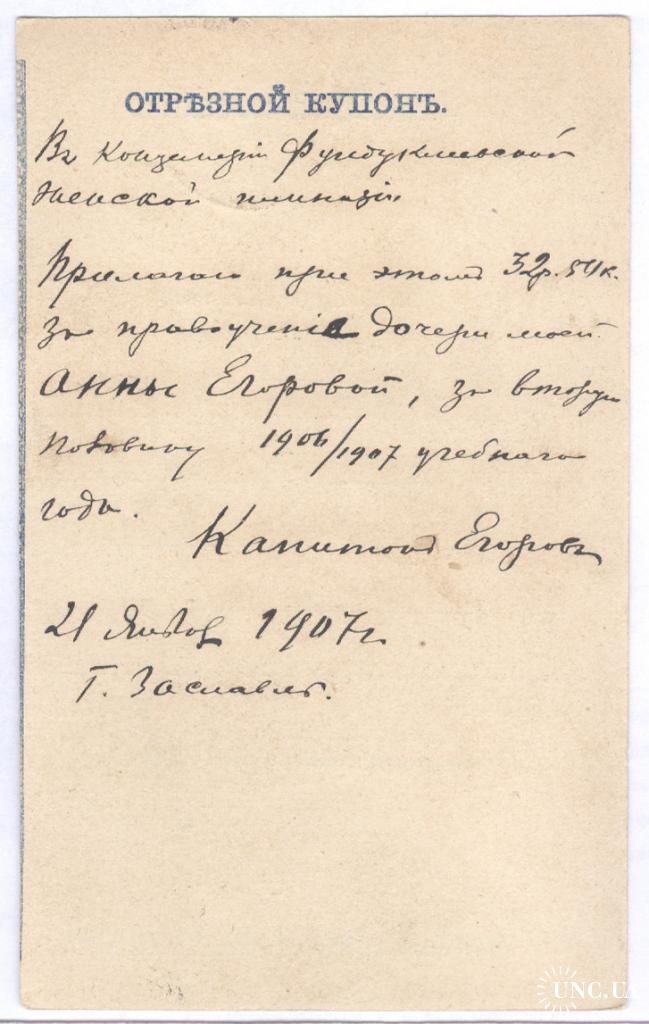 ОТРѢЗНОЙ КУПОНЪ.
Въ Канцелярію Фундуклеевской
женской гимназіи
Прилагаю при этомъ 32р. 54к.
за правоученіе дочери моей
Анны Егоровой, за вторую
половину 1906/1907 учебнаго
года.
Капитонъ Егоровъ
21 Января 1907г.
Г. Заславль.
UNC.UA